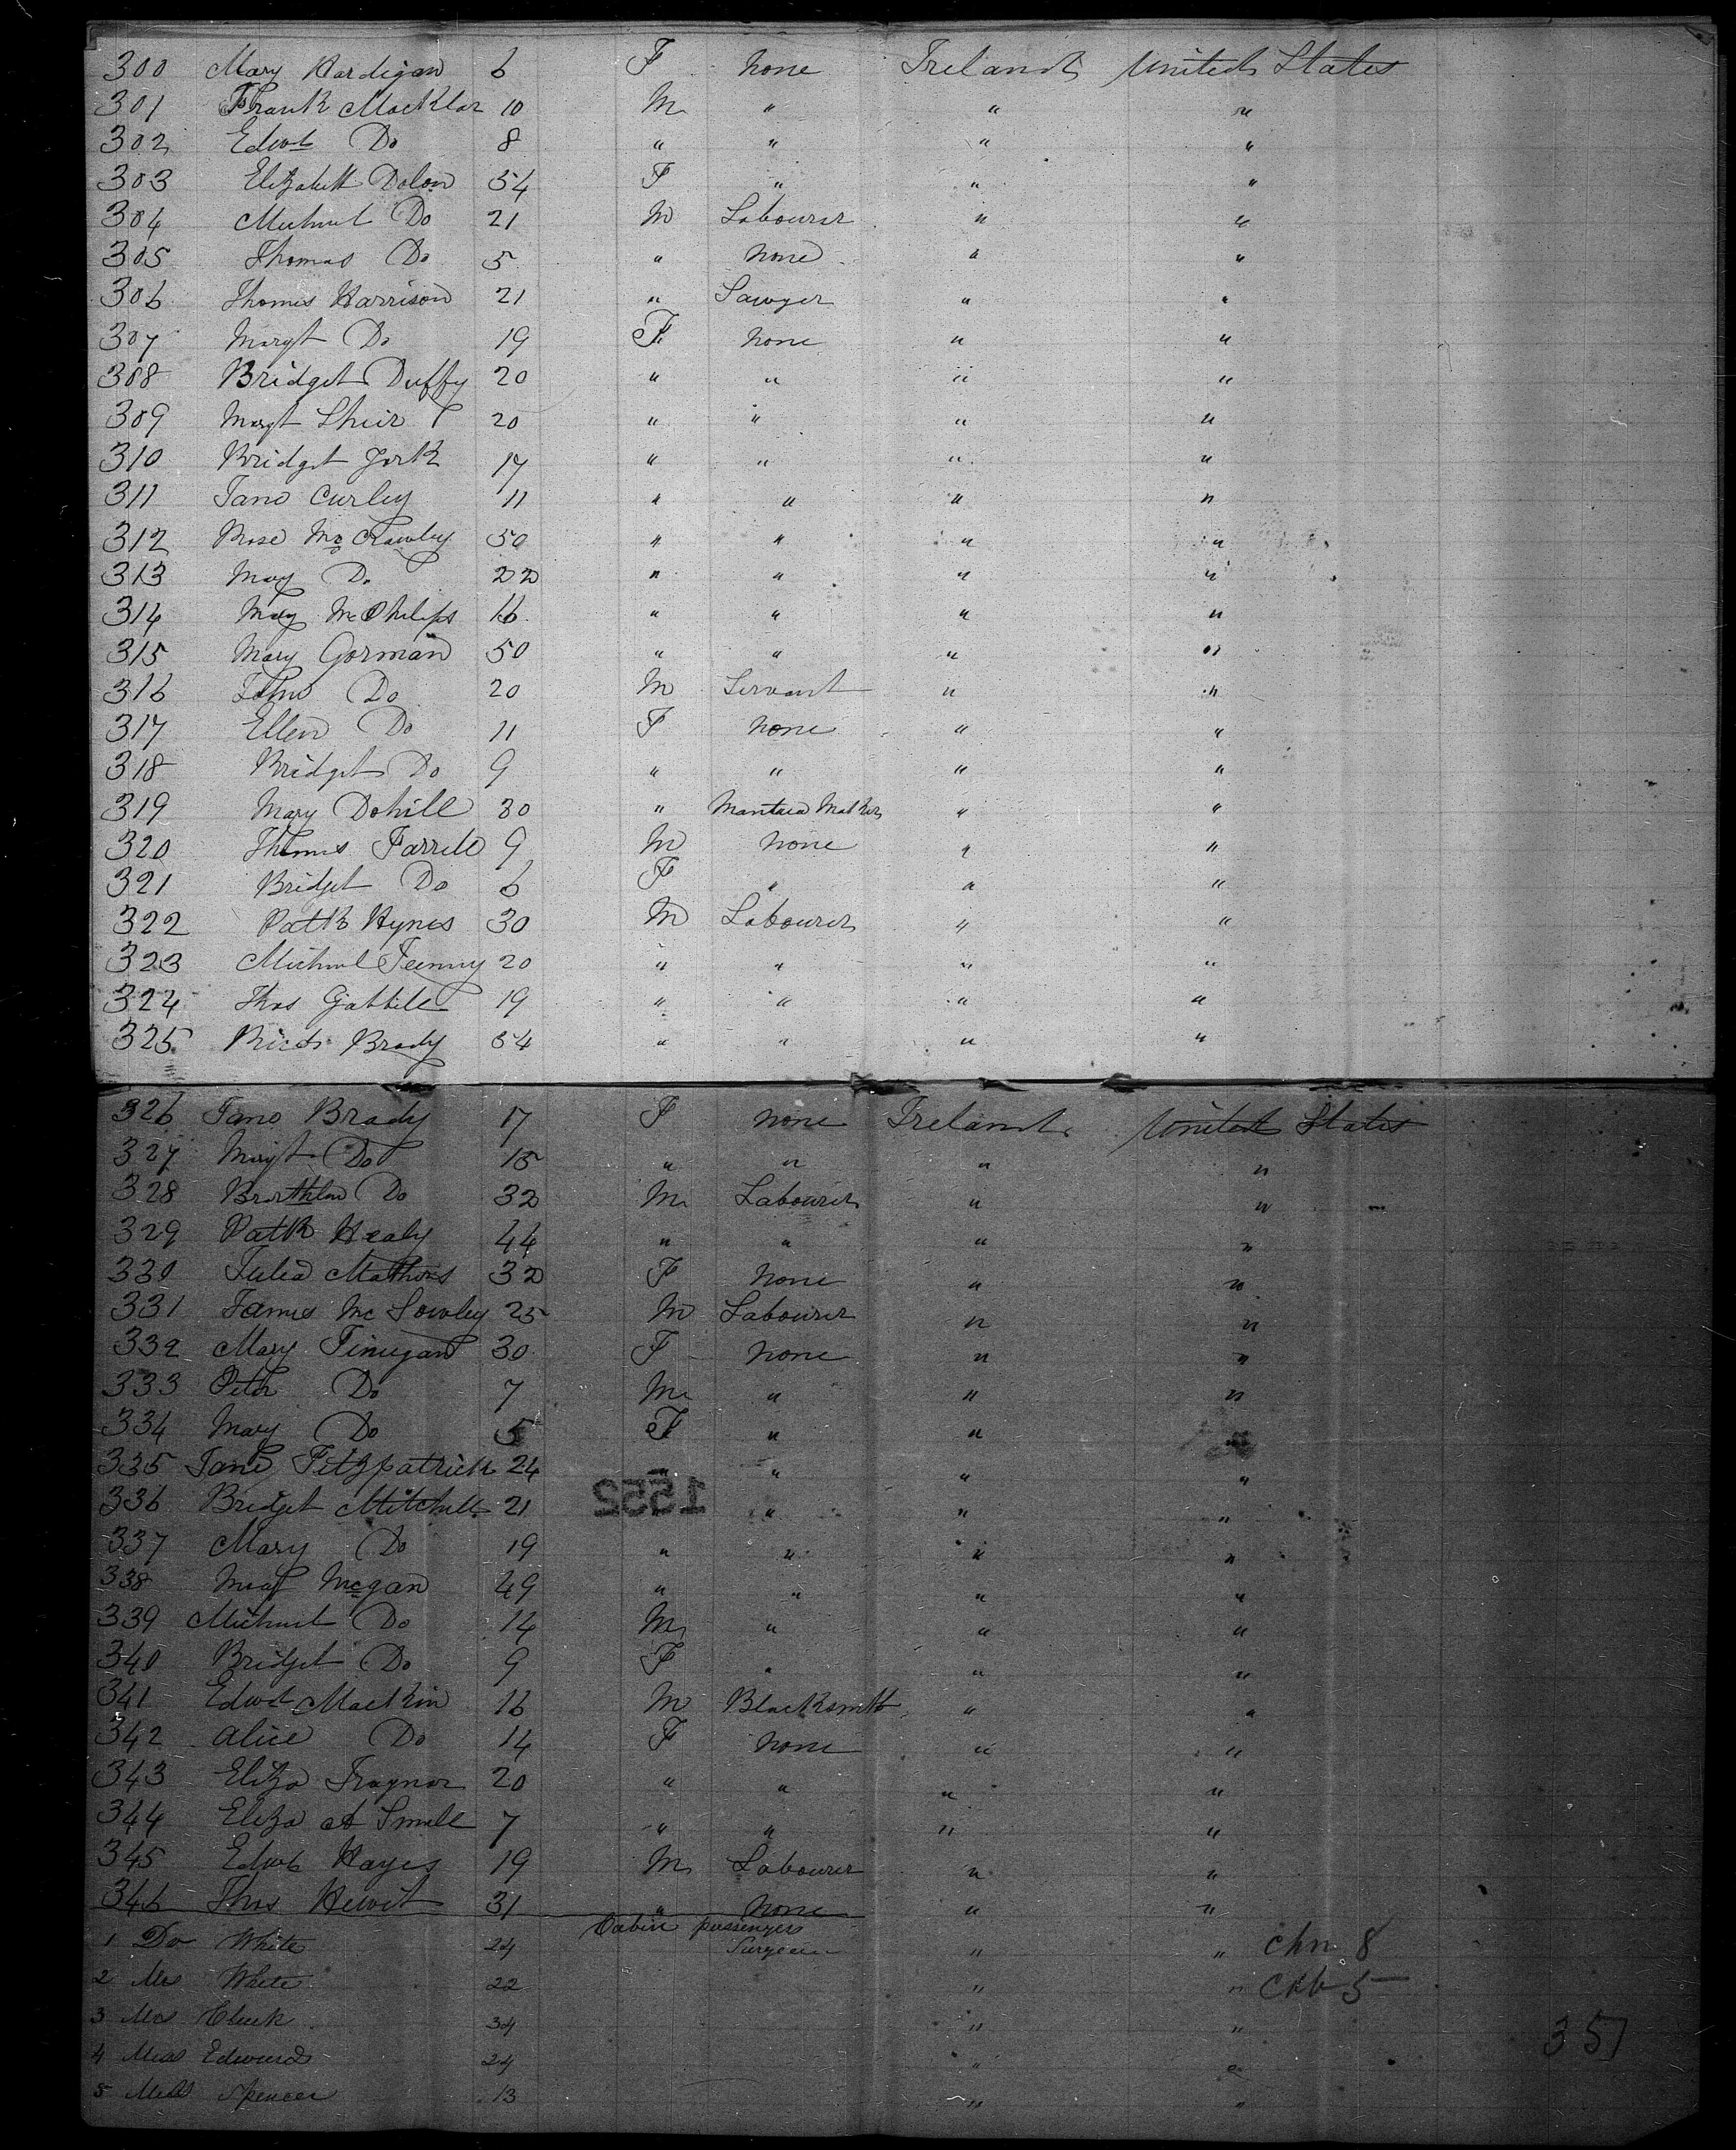 300 Mary Hardigan 6 F None Ireland United States
301 Frank Macklar 10 M " " "
302 Edwd Do 8 " " " "
303 Elizabeth Dolon 54 F " " "
304 Michael Do 21 M Labourer " "
305 Thomas Do 5 " None " "
306 Thomas Harrison 21 " Sawyer " "
307 Margt Do 19 F None " "
308 Bridget Duffy 20 " " " "
309 Margt 20 " " " "
310 Bridget York 17 " " " "
311 Jane Curley 11 " " " "
312 Rose Mc Crawley 50 " " " "
313 Mary Do 22 " " " "
314 Mary McPhilips 16 " " " "
315 Mary Gorman 50 " " " "
316 John Do 20 M Servant " "
317 Ellen Do 11 F None " "
318 Bridget Do 9 " " " "
319 Mary Dohill 30 " Mantua Maker " "
320 Thomas Farrell 9 M None " "
321 Bridget Do 6 F " " "
322 Patk Hynes 30 M Labourer " "
323 Michael Feenny 20 " " " "
324 Thos 19 " " " "
325 Richd Brady 54 " " " "
326 Jane Brady 17 F None Ireland United States
327 Margt Do 15 " " " "
328 Do 32 M Labourer " "
329 Patk Healy 44 " " " "
330 Julia Mathews 32 F None " "
331 James Mc Sowley 25 M Labourer " "
332 Mary Finegan 30 F None " "
333 Peter Do 7 M " " "
334 Mary Do 5 F " " "
335 Jane Fitzpatrick 24 " " " "
336 Bridget Mitchell 21 " " " "
1552
337 Mary Do 19 " " " "
338 Margt Megan 49 " " " "
339 Michael Do 14 M " " "
340 Bridget Do 9 F " " "
341 Edwd Mackin 16 M Blacksmith " "
342 Alice Do 14 F None " "
343 Eliza Traynor 20 " " " "
344 Eliza A Small 7 " " " "
345 Edwd Hayes 19 M Labourer " "
346 Thos Hewit 31 " None " "
Cabin passengers
1 Dr White 24 Surgeon " " chn 8
2 Mrs White 22 " " 5
3 Mrs 34 " "
351
4 Miss Edwards 24 " "
5 Miss Spencer 13 " "